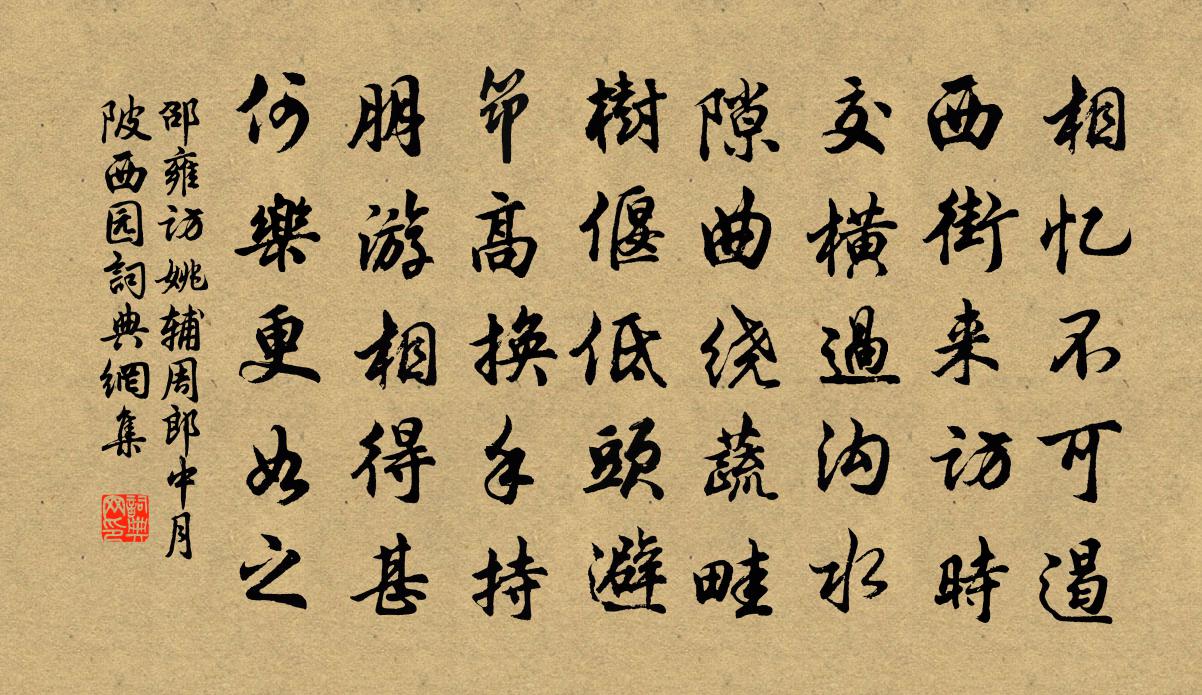 相忆不可遏
西街来访時
交橫過沟水
隙曲绕蔬畦
樹偃低頭避
筇高換手持
朋游相得甚
何樂更如之
邵雍访姚辅周郎中月
陂西园詞典網集
詞典
网印